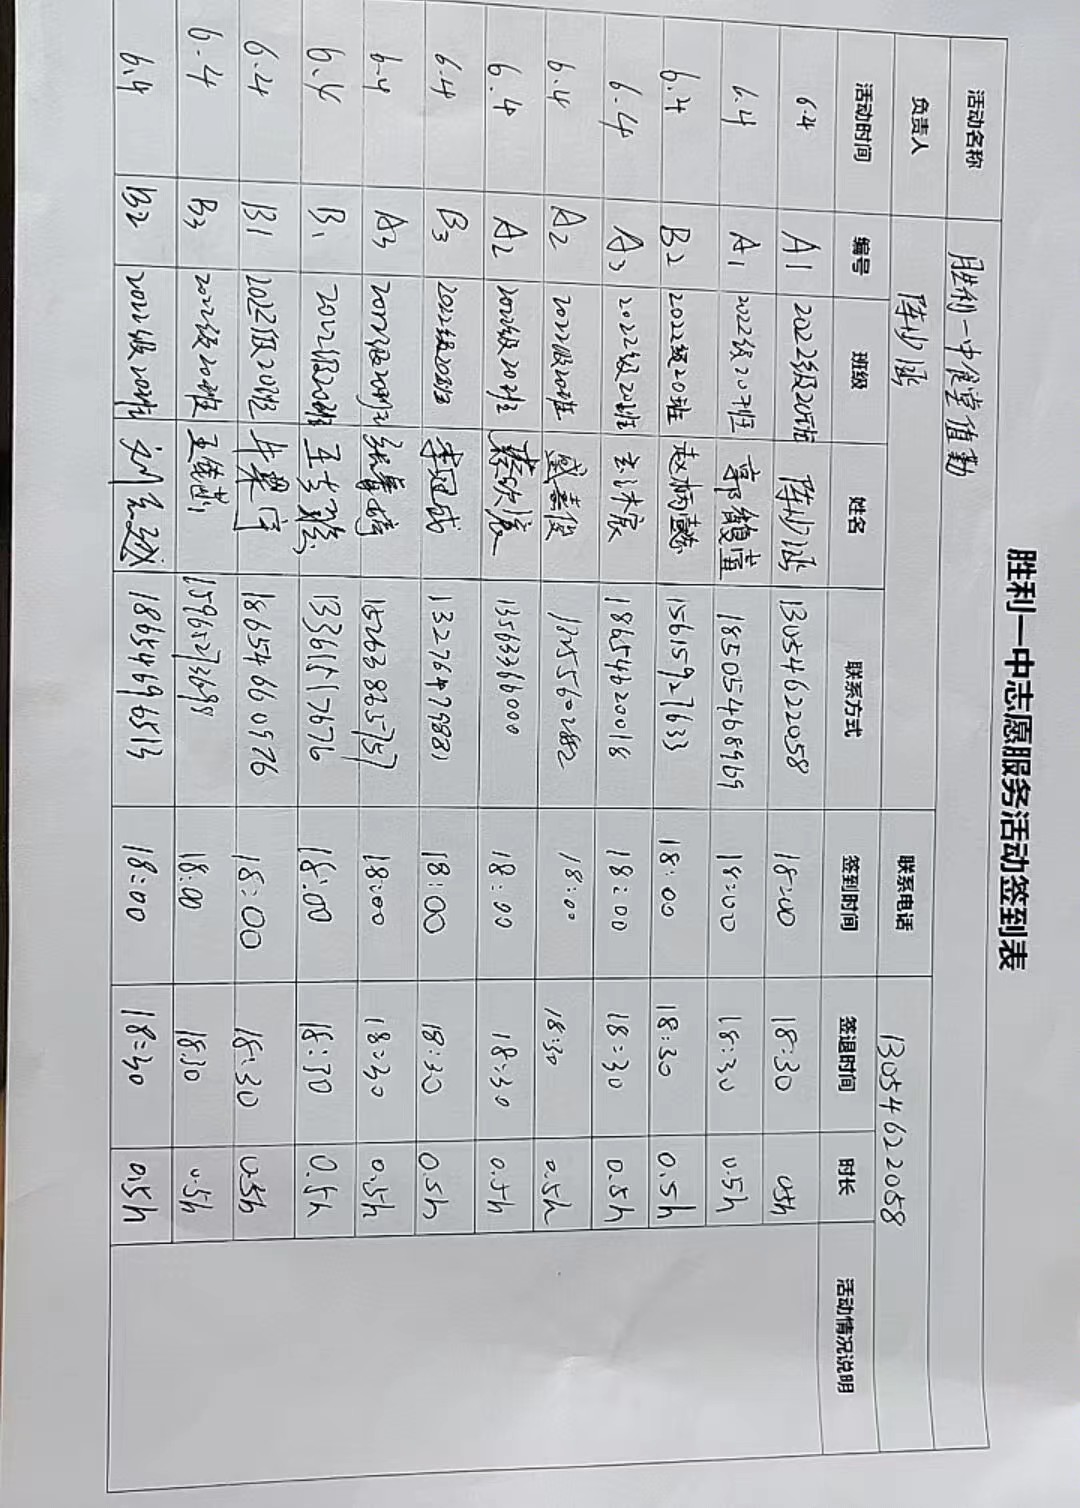 胜利一中志愿服务活动签到表
活动名称 胜利一中食堂值勤
负责人 陈沙涵 联系电话 13054622058
活动时间 编号 班级 姓名 联系方式 签到时间 签退时间 时长 活动情况说明
6.4 A1 2022级20班 陈沙涵 13054622058 18:00 18:30 0.5h
6.4 A1 2022级20班 郭馥萱 18505468969 18:00 18:30 0.5h
6.4 B2 2022级20班 赵炳懿 15615927633 18:00 18:30 0.5h
6.4 A3 2022级20班 18654620018 18:00 18:30 0.5h
6.4 A2 2022级20班 盛嘉俊 18:00 18:30 0.5h
6.4 A2 2022级20班 13563366000 18:00 18:30 0.5h
6.4 B3 2022级20班 李冠成 13276479881 18:00 18:30 0.5h
6.4 A3 2022级20班 15263865757 18:00 18:30 0.5h
6.4 B1 2022级20班 13361517676 18:00 18:30 0.5h
6.4 B1 2022级20班 18654660976 18:00 18:30 0.5h
6.4 B3 2022级20班 18:00 18:30 0.5h
6.4 B2 2022级20班 18654696513 18:00 18:30 0.5h